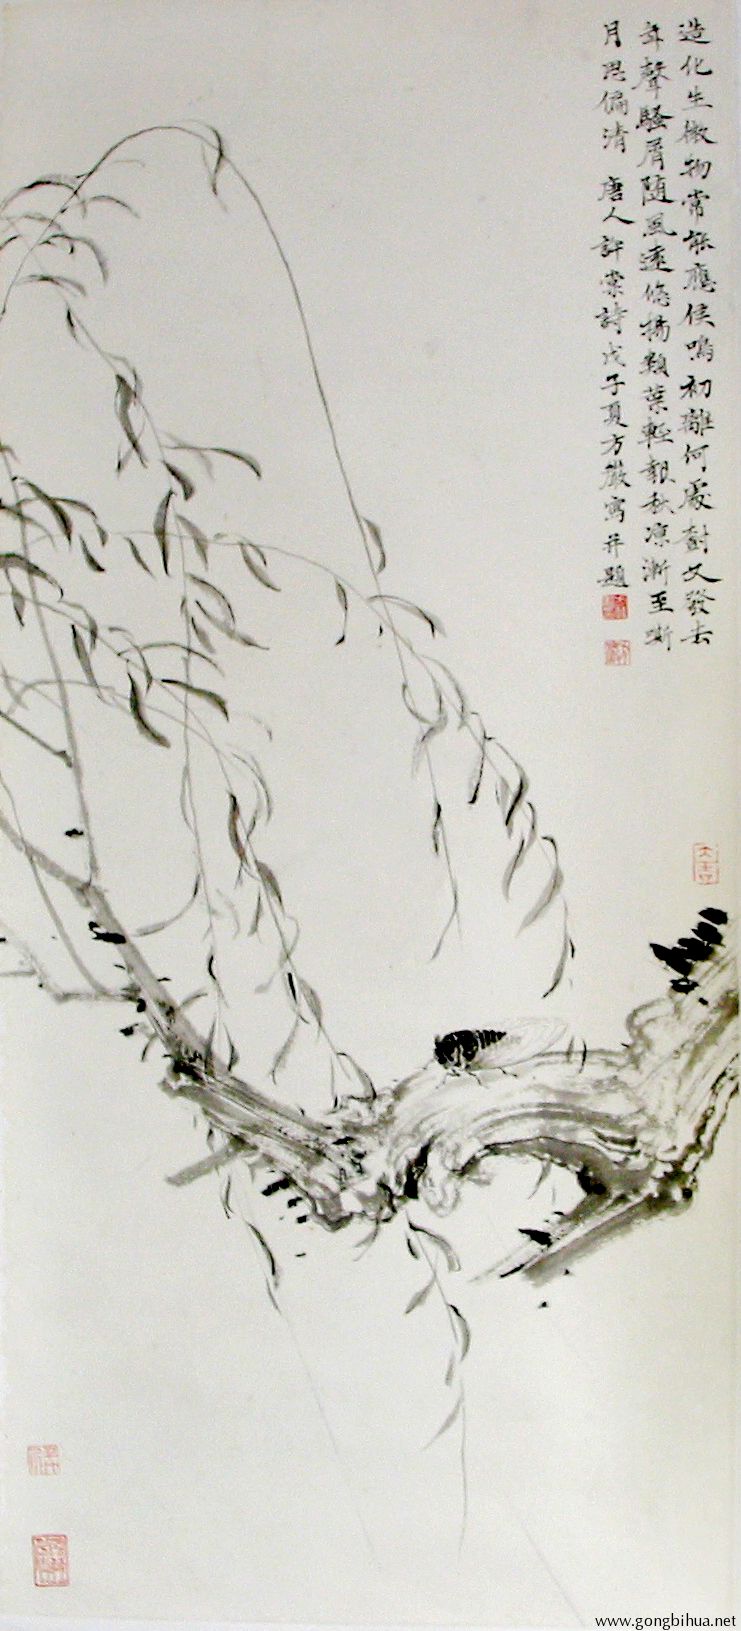 造化生微物常能應侯鳴初離何處樹又發去
年聲騷屑隨風遠悠揚類葉輕報秋涼漸至嘶
月思偏清 唐人許棠詩 戊子夏方嚴寫并題
www.gongbihua.net